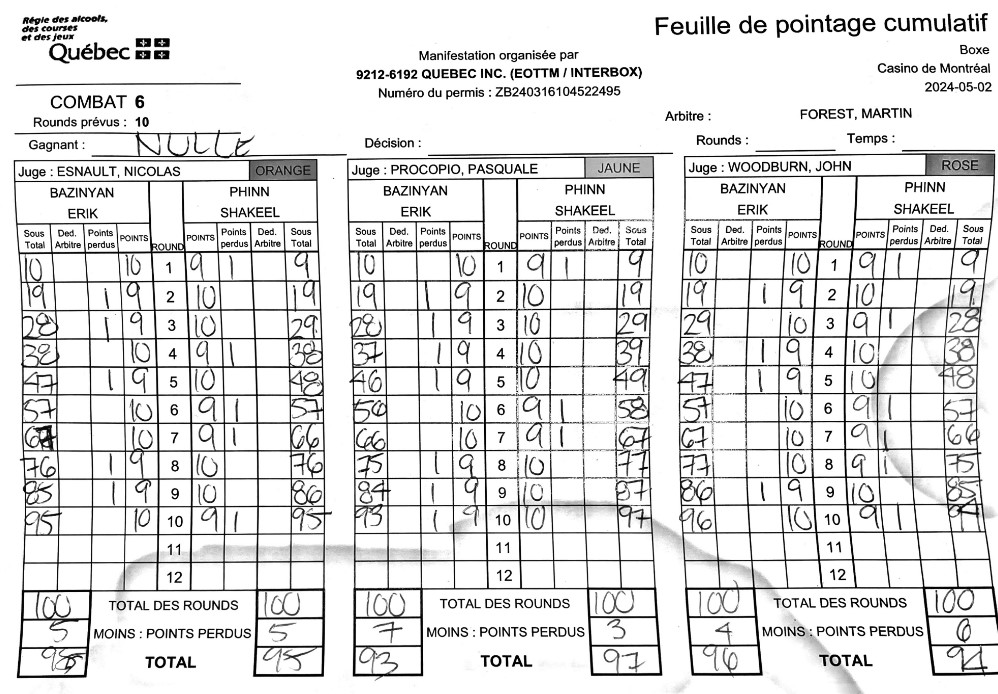 Régie des alcools,
des courses
et des jeux
Québec
Feuille de pointage cumulatif
Boxe
Casino de Montréal
2024-05-02
Manifestation organisée par
9212-6192 QUEBEC INC. (EOTTM / INTERBOX)
Numéro du permis : ZB240316104522495
COMBAT 6
Rounds prévus : 10
Gagnant : NULLE
Décision :
Arbitre : FOREST, MARTIN
Rounds : Temps :
Juge : ESNAULT, NICOLAS ORANGE
BAZINYAN PHINN
ERIK SHAKEEL
Sous Total Ded. Arbitre Points perdus POINTS ROUND POINTS Points perdus Ded. Arbitre Sous Total
10 10 1 9 1 9
19 1 9 2 10 19
28 1 9 3 10 29
38 10 4 9 1 38
47 1 9 5 10 48
57 10 6 9 1 57
67 10 7 9 1 66
76 1 9 8 10 76
85 1 9 9 10 86
95 10 10 9 1 95
11
12
100 TOTAL DES ROUNDS 100
5 MOINS : POINTS PERDUS 5
95 TOTAL 95
Juge : PROCOPIO, PASQUALE JAUNE
BAZINYAN PHINN
ERIK SHAKEEL
Sous Total Ded. Arbitre Points perdus POINTS ROUND POINTS Points perdus Ded. Arbitre Sous Total
10 10 1 9 1 9
19 1 9 2 10 19
28 1 9 3 10 29
37 1 9 4 10 39
46 1 9 5 10 49
56 10 6 9 1 58
66 10 7 9 1 67
75 1 9 8 10 77
84 1 9 9 10 87
93 1 9 10 10 97
11
12
100 TOTAL DES ROUNDS 100
7 MOINS : POINTS PERDUS 3
93 TOTAL 97
Juge : WOODBURN, JOHN ROSE
BAZINYAN PHINN
ERIK SHAKEEL
Sous Total Ded. Arbitre Points perdus POINTS ROUND POINTS Points perdus Ded. Arbitre Sous Total
10 10 1 9 1 9
19 1 9 2 10 19
29 10 3 9 1 28
38 1 9 4 10 38
47 1 9 5 10 48
57 10 6 9 1 57
67 10 7 9 1 66
77 10 8 9 1 75
86 1 9 9 10 85
96 10 10 9 1 94
11
12
100 TOTAL DES ROUNDS 100
4 MOINS : POINTS PERDUS 6
96 TOTAL 94